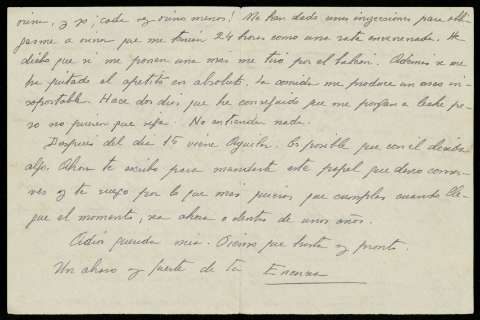 orina, y yo ¡cada vez orino menos! Me han dado unas inyecciones para obli-
garme a orinar que me tenían 24 horas como una rata envenenada. He
dicho que si me ponen una más me tiro por el balcón. Además se me
ha quitado el apetito en absoluto. La comida me produce un asco in-
soportable. Hace dos días que he conseguido que me pongan a leche pe-
ro no quieren que siga. No entiendo nada.
Después del día 15 viene Aguilar. Es posible que con él decida
algo. Ahora te escribo para mandarte este papel que deseo conser-
ves y te ruego por lo que más quieras que cumplas cuando lle-
gue el momento, sea ahora o dentro de unos años.
Adiós querida mía. Deseo que hasta muy pronto.
Un abrazo muy fuerte de tu